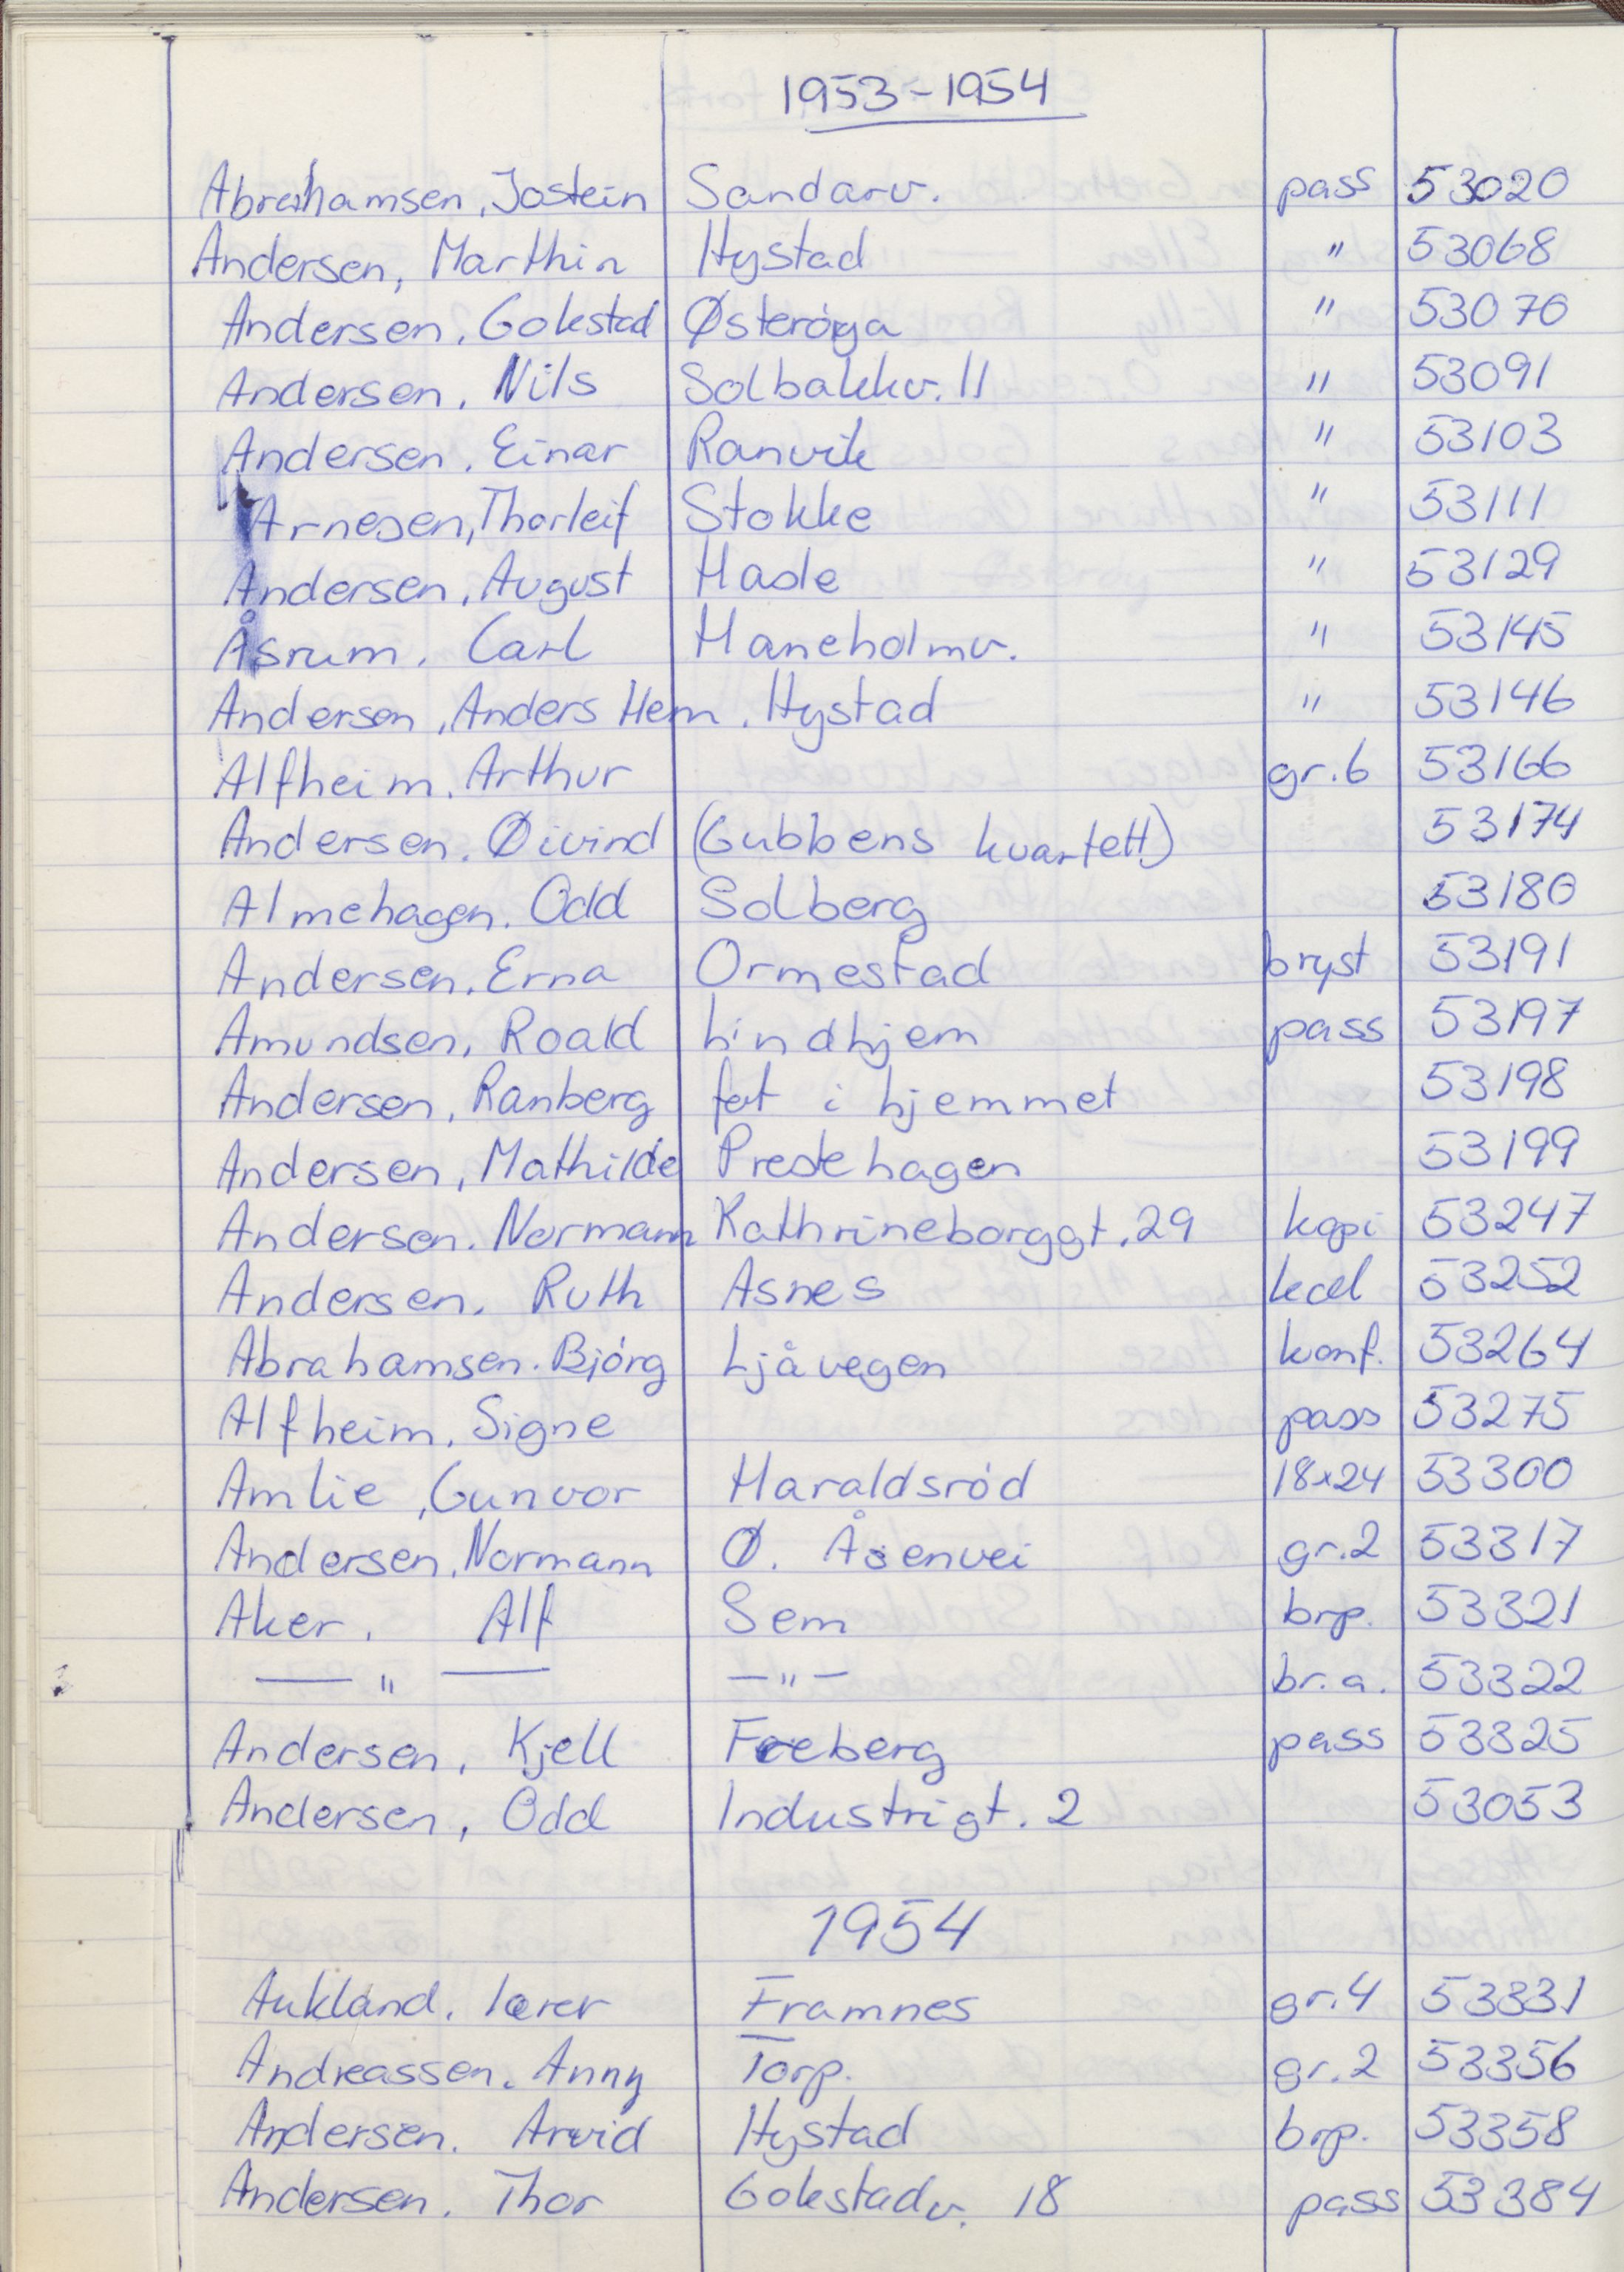 1953-1954
Abrahamsen, Jostein Sandarv. pass 53020
Andersen, Marthin Hystad " 53068
Andersen, Gokstad Østerøya " 53070
Andersen, Nils Solbakkv. 11 " 53091
Andersen, Einar Ranvik " 53103
Arnesen, Thorleif Stokke " 53111
Andersen, August Hasle " 53129
Åsrum, Carl Haneholmv. " 53145
Andersen, Anders Hem, Hystad " 53146
Alfheim, Arthur gr.6 53166
Andersen, Øivind (Gubbens kvartett) 53174
Almehagen, Odd Solberg 53180
Andersen, Erna Ormestad bryst 53191
Amundsen, Roald Lindhjem pass 53197
Andersen, Ranberg fot i hjemmet 53198
Andersen, Mathilde Prestehagen 53199
Andersen, Normann Kathrineborggt. 29 kopi 53247
Andersen, Ruth Asnes 53252
Abrahamsen, Bjørg Ljåvegen konf. 53264
Alfheim, Signe pass 53275
Amlie, Gunvor Haraldsrød 18x24 53300
Andersen, Normann Ø. Åsenvei gr.2 53317
Aker, Alf Sem brp. 53321
— " — — " — br.a. 53322
Andersen, Kjell Freberg pass 53325
Andersen, Odd Industrigt. 2 53053
1954
Aukland, lærer Framnes gr.4 53331
Andreassen, Anny Torp. gr.2 53356
Andersen, Arvid Hystad brp. 53358
Andersen, Thor Gokstadv. 18 pass 53384